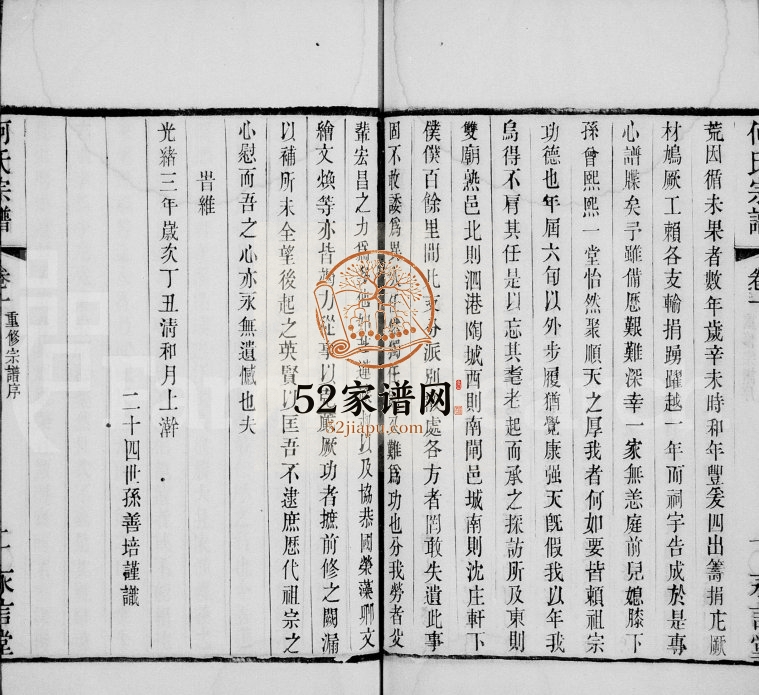 何氏宗譜
卷一
荒因循未果者數年歲辛未時和年豐爰四出籌捐庀厥
材鳩厥工賴各支輸捐踴躍越一年而祠宇告成於是專
心譜牒矣予雖備歷艱難深幸一家無恙庭前兒媳膝下
孫曾熙熙一堂怡然聚順天之厚我者何如要皆賴祖宗
功德也年屆六旬以外步履猶覺康强天旣假我以年我
烏得不肩其任是以忘其耄老起而承之探訪所及東則
雙廟熟邑北則泗港陶城西則南閘邑城南則沈庄軒下
僕僕百餘里間此支分派別散處各方者罔敢失遺此事
固不敢諉爲異 難爲功也分我勞者 
輩宏昌之力 以及協恭國榮藻卿文
繪文煥等亦皆 力從事以 厥功者摭前修之闕漏
以補所未全望後起之英賢以匡吾不逮庶歷代祖宗之
心慰而吾之心亦永無遺憾也夫
旹維
光緒三年歲次丁丑淸和月上澣
二十四世孫善培謹識
何氏宗譜
卷一
重修宗譜序
永言堂
52家谱网
52jiapu.com